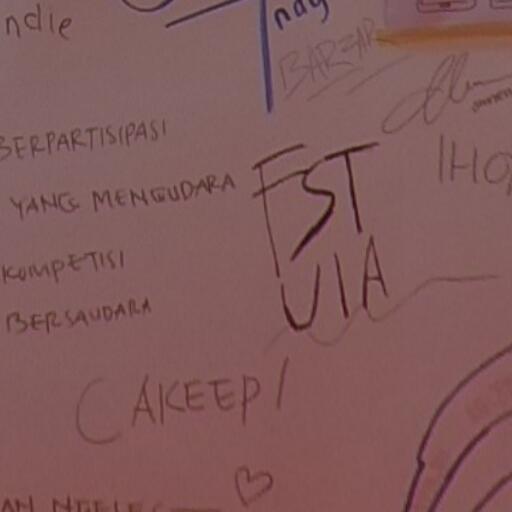 ndie
BARZAP
BERPARTISIPASI
YANG MENGUDARA
KOMPETISI
BERSAUDARA
FST
UIA
CAKEEP!